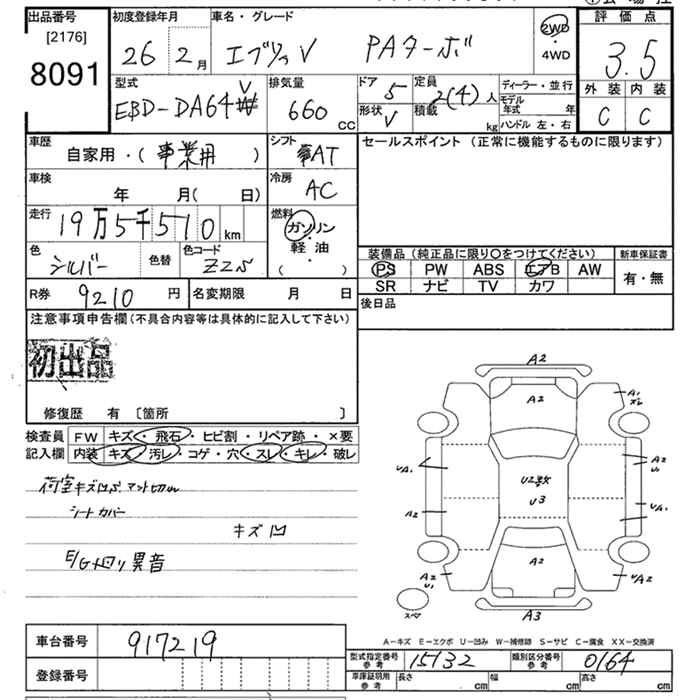 出品番号 初度登録年月 車名・グレード 2WD 評価点
[2176] 26 2月 エブリィV PAターボ 4WD 3.5
8091
型式 排気量 ドア 5 定員 2(4)人 ディーラー・並行 外装 内装
EBD-DA64V 660cc 形状 V 積載 kg モデル年式 年 C C
ハンドル 左・右
車歴 シフト セールスポイント (正常に機能するものに限ります)
自家用・(事業用) AT
車検 冷房
年 月(日) AC
走行 燃料
19万5千510km ガソリン
軽・油
( )
色 色替 色コード 装備品(純正品に限り○をつけてください) 新車保証書
シルバー Z2S PS PW ABS エアB AW 有・無
SR ナビ TV カワ
R券 9210円 名変期限 月 日 後日品
注意事項申告欄(不具合内容等は具体的に記入して下さい)
初出品
修復歴 有 〔箇所 〕
検査員 FW キズ・飛石・ヒビ割・リペア跡・×要
記入欄 内装 キズ・汚レ・コゲ・穴・スレ・キレ・破レ
荷室キズ凹
シートカバー
キズ凹
E/G回り異音
A2
A2
A1
UA1
A2
U3
UA1
A2
A2
U1
A2
UA2
A3
スペア
A-キズ E-エクボ U-凹み W-補修跡 S-サビ C-腐食 XX-交換済
車台番号 917219 型式指定番号 参考 15132 類別区分番号 参考 0164
登録番号 車庫証明用 参考 長さ cm 幅 cm 高さ cm